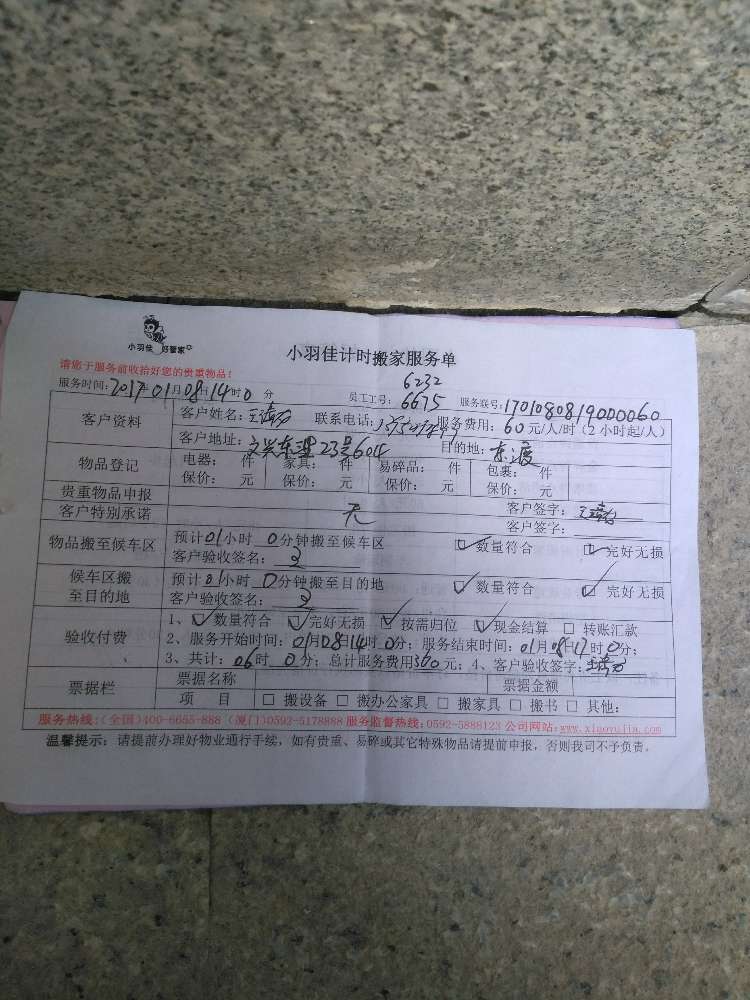 小羽佳 好管家
小羽佳计时搬家服务单
请您于服务前收拾好您的贵重物品!
服务时间:2017年01月08日14时0分 员工工号:6232 6675 服务联号:170108081900060
客户资料 客户姓名: 联系电话: 服务费用:60元/人/时(2小时起/人)
客户地址:文兴东里23号604 目的地:东渡
物品登记 电器: 件 家具: 件 易碎品: 件 包裹: 件
保价: 元 保价: 元 保价: 元 保价: 元
贵重物品申报 客户签字:
客户特别承诺 无 客户签字:
物品搬至候车区 预计01小时0分钟搬至候车区 数量符合 完好无损
客户验收签名:
候车区搬至目的地 预计01小时0分钟搬至目的地 数量符合 完好无损
客户验收签名:
验收付费 1、数量符合 完好无损 按需归位 现金结算 转账汇款
2、服务开始时间:01月08日14时0分;服务结束时间:01月08日17时0分;
3、共计:06时0分;总计服务费用360元;4、客户验收签字:
票据栏 票据名称 票据金额
项 目 搬设备 搬办公家具 搬家具 搬书 其他:
服务热线:(全国)400-6655-888 (厦门)0592-5178888 服务监督热线:0592-5888123 公司网站:www.xiaoyujia.com
温馨提示:请提前办理好物业通行手续,如有贵重、易碎或其它特殊物品请提前申报,否则我司不予负责。